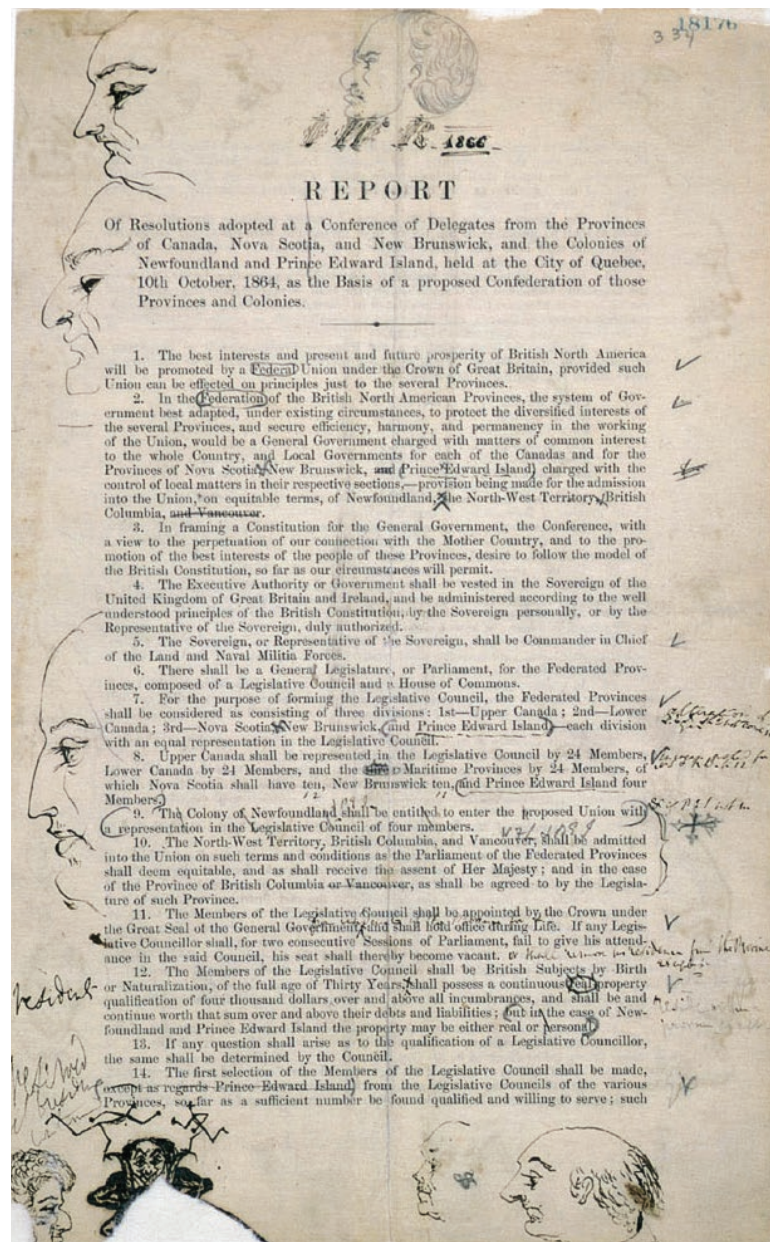 18176
334
1866
REPORT
Of Resolutions adopted at a Conference of Delegates from the Provinces
of Canada, Nova Scotia, and New Brunswick, and the Colonies of
Newfoundland and Prince Edward Island, held at the City of Quebec,
10th October, 1864, as the Basis of a proposed Confederation of those
Provinces and Colonies.
1. The best interests and present and future prosperity of British North America
will be promoted by a Federal Union under the Crown of Great Britain, provided such
Union can be effected on principles just to the several Provinces.
2. In the Federation of the British North American Provinces, the system of Gov-
ernment best adapted, under existing circumstances, to protect the diversified interests of
the several Provinces, and secure efficiency, harmony, and permanency in the working
of the Union, would be a General Government charged with matters of common interest
to the whole Country, and Local Governments for each of the Canadas and for the
Provinces of Nova Scotia, New Brunswick, and Prince Edward Island, charged with the
control of local matters in their respective sections,—provision being made for the admission
into the Union, on equitable terms, of Newfoundland, the North-West Territory, British
Columbia, and Vancouver.
3. In framing a Constitution for the General Government, the Conference, with
a view to the perpetuation of our connection with the Mother Country, and to the pro-
motion of the best interests of the people of these Provinces, desire to follow the model of
the British Constitution, so far as our circumstances will permit.
4. The Executive Authority or Government shall be vested in the Sovereign of the
United Kingdom of Great Britain and Ireland, and be administered according to the well
understood principles of the British Constitution, by the Sovereign personally, or by the
Representative of the Sovereign, duly authorized.
5. The Sovereign, or Representative of the Sovereign, shall be Commander in Chief
of the Land and Naval Militia Forces.
6. There shall be a General Legislature, or Parliament, for the Federated Prov-
inces, composed of a Legislative Council and a House of Commons.
7. For the purpose of forming the Legislative Council, the Federated Provinces
shall be considered as consisting of three divisions: 1st—Upper Canada; 2nd—Lower
Canada; 3rd—Nova Scotia, New Brunswick, and Prince Edward Island,—each division
with an equal representation in the Legislative Council.
8. Upper Canada shall be represented in the Legislative Council by 24 Members,
Lower Canada by 24 Members, and the Maritime Provinces by 24 Members, of
which Nova Scotia shall have ten, New Brunswick ten, and Prince Edward Island four
Members.
12
9. The Colony of Newfoundland shall be entitled to enter the proposed Union with
a representation in the Legislative Council of four members.
10. The North-West Territory, British Columbia, and Vancouver, shall be admitted
into the Union on such terms and conditions as the Parliament of the Federated Provinces
shall deem equitable, and as shall receive the assent of Her Majesty; and in the case
of the Province of British Columbia or Vancouver, as shall be agreed to by the Legisla-
ture of such Province.
11. The Members of the Legislative Council shall be appointed by the Crown under
the Great Seal of the General Government, and shall hold office during Life. If any Legis-
lative Councillor shall, for two consecutive Sessions of Parliament, fail to give his attend-
ance in the said Council, his seat shall thereby become vacant.
12. The Members of the Legislative Council shall be British Subjects by Birth
or Naturalization, of the full age of Thirty Years, shall possess a continuous real property
qualification of four thousand dollars over and above all incumbrances, and shall be and
continue worth that sum over and above their debts and liabilities; but in the case of New-
foundland and Prince Edward Island the property may be either real or personal.
13. If any question shall arise as to the qualification of a Legislative Councillor,
the same shall be determined by the Council.
14. The first selection of the Members of the Legislative Council shall be made,
except as regards Prince Edward Island, from the Legislative Councils of the various
Provinces, so far as a sufficient number be found qualified and willing to serve; such
resident